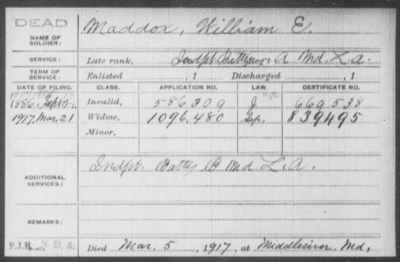 DEAD
NAME OF SOLDIER: Maddox, William E.
SERVICE: Late rank, Indpt. Batty A Md. L.A.
TERM OF SERVICE: Enlisted , 1 Discharged , 1
DATE OF FILING. CLASS. APPLICATION NO. LAW. CERTIFICATE NO.
1886, Invalid, 586.309 J 669.538
1917, Mar. 21 Widow, 1096.480 839495
Minor,
ADDITIONAL SERVICES: Indpt. Batty B Md L.A.
REMARKS:
Died Mar. 5, 1917, at Md.